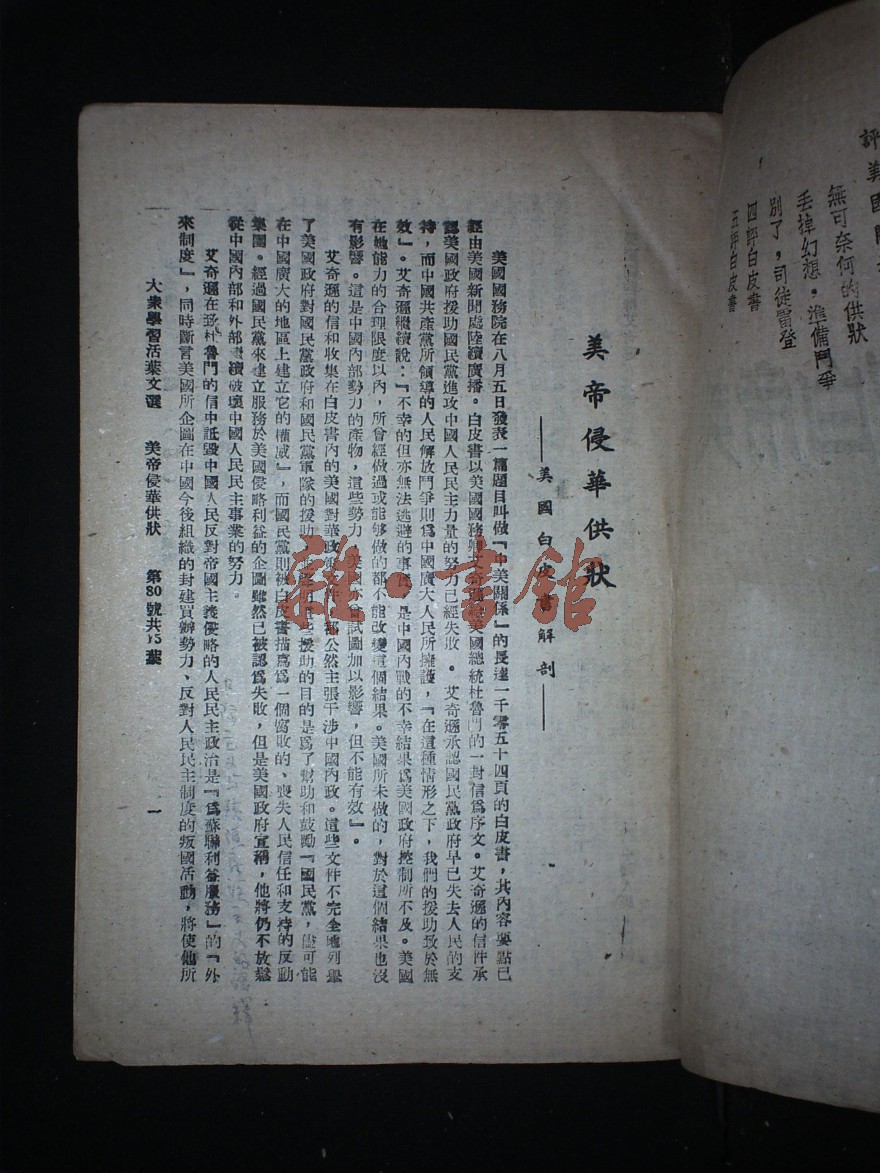 評美國
無可奈何的供狀
丢掉幻想，準備鬥爭
別了，司徒雷登
四評白皮書
五評白皮書
美帝侵華供狀
——美國白皮書解剖——
美國國務院在八月五日發表一篇題目叫做『中美關係』的長達一千零五十四頁的白皮書，其內容要點已
經由美國新聞處陸續廣播。白皮書以美國國務卿艾奇遜致美國總統杜魯門的一封信爲序文。艾奇遜的信件承
認美國政府援助國民黨進攻中國人民民主力量的努力已經失敗。艾奇遜承認國民黨政府早已失去人民的支
持，而中國共產黨所領導的人民解放鬥爭則爲中國廣大人民所擁護，『在這種情形之下，我們的援助致於無
效』。艾奇遜繼續說：『不幸的但亦無法逃避的事 是中國內戰的不幸結果爲美國政府控制所不及。美國
在她能力的合理限度以內，所曾經做過或能够做的都不能改變這個結果。美國所未做的，對於這個結果也沒
有影響。這是中國內部勢力的產物，這些勢力，美國亦曾試圖加以影響，但不能有效』。
艾奇遜的信和收集在白皮書內的美國對華政策文件，都公然主張干涉中國內政。這些文件不完全地列舉
了美國政府對國民黨政府和國民黨軍隊的援助 這些援助的目的是爲了幫助和鼓勵『國民黨，儘可能
在中國廣大的地區上建立它的權威』，而國民黨則被白皮書描寫爲一個腐敗的、喪失人民信任和支持的反動
集團。經過國民黨來建立服務於美國侵略利益的企圖雖然已被認爲失敗，但是美國政府宣稱，他將仍不放鬆
從中國內部和外部繼續破壞中國人民民主事業的努力。
艾奇遜在致杜魯門的信中詆毀中國人民反對帝國主義侵略的人民民主政治是『爲蘇聯利益服務』的『外
來制度』，同時斷言美國所企圖在中國今後組織的封建買辦勢力、反對人民民主制度的叛國活動，將使他所
大衆學習活葉文選 美帝侵華供狀 第80號共15葉 一
雜·書館